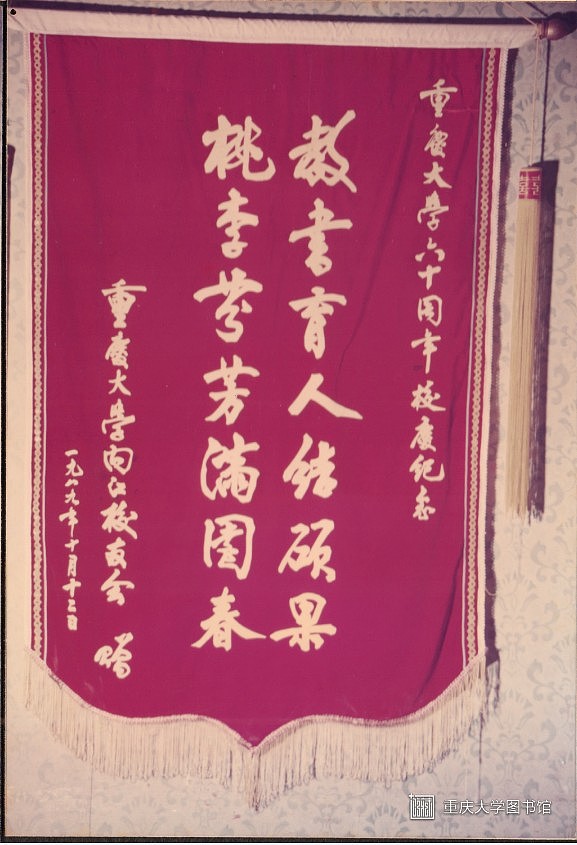 重慶大学六十周年校慶纪念
教书育人结硕果
桃李芬芳满园春
重慶大学内江校友会 赠
一九八九年十月十二日
重庆大学图书馆